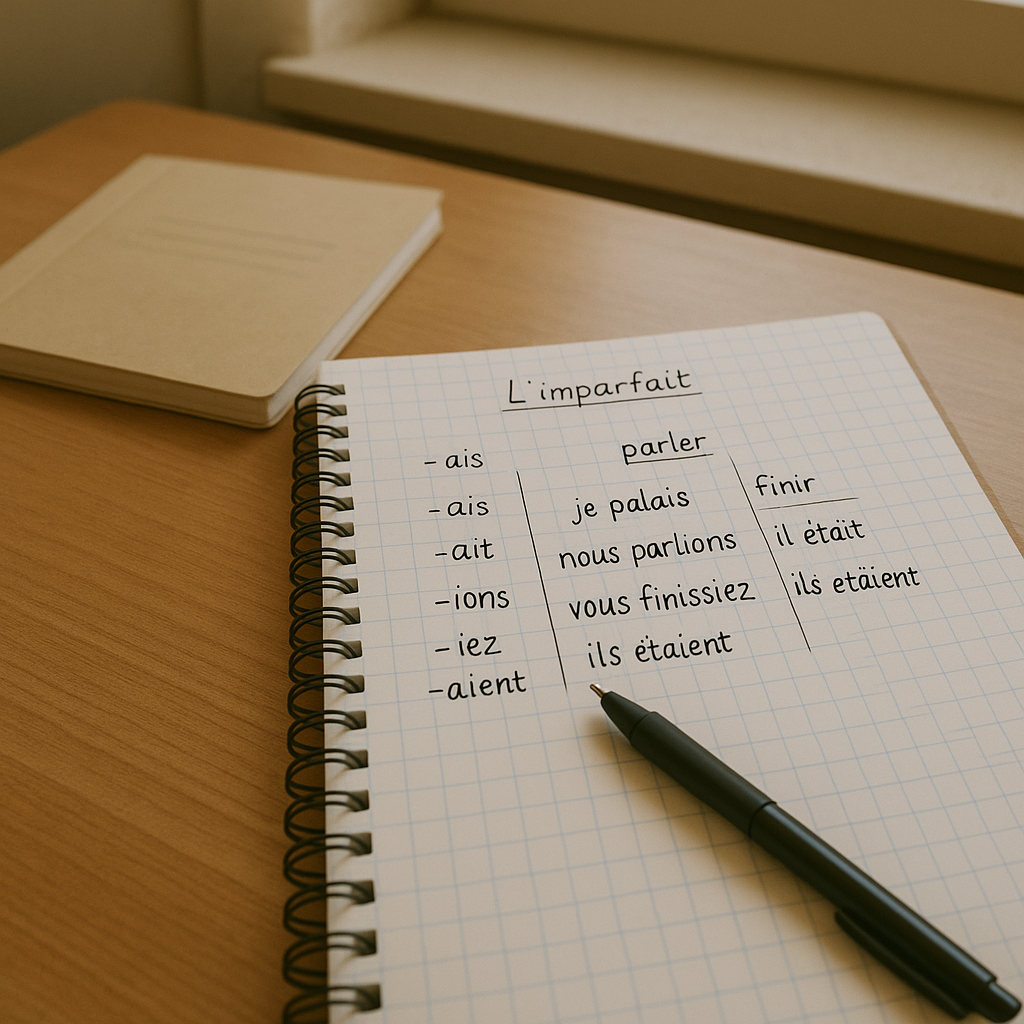 L'imparfait
- ais
- ais
- ait
- ions
- iez
- aient
parler
je palais
nous parlions
vous finissiez
ils ëtaient
finir
il étäit
ils etäient